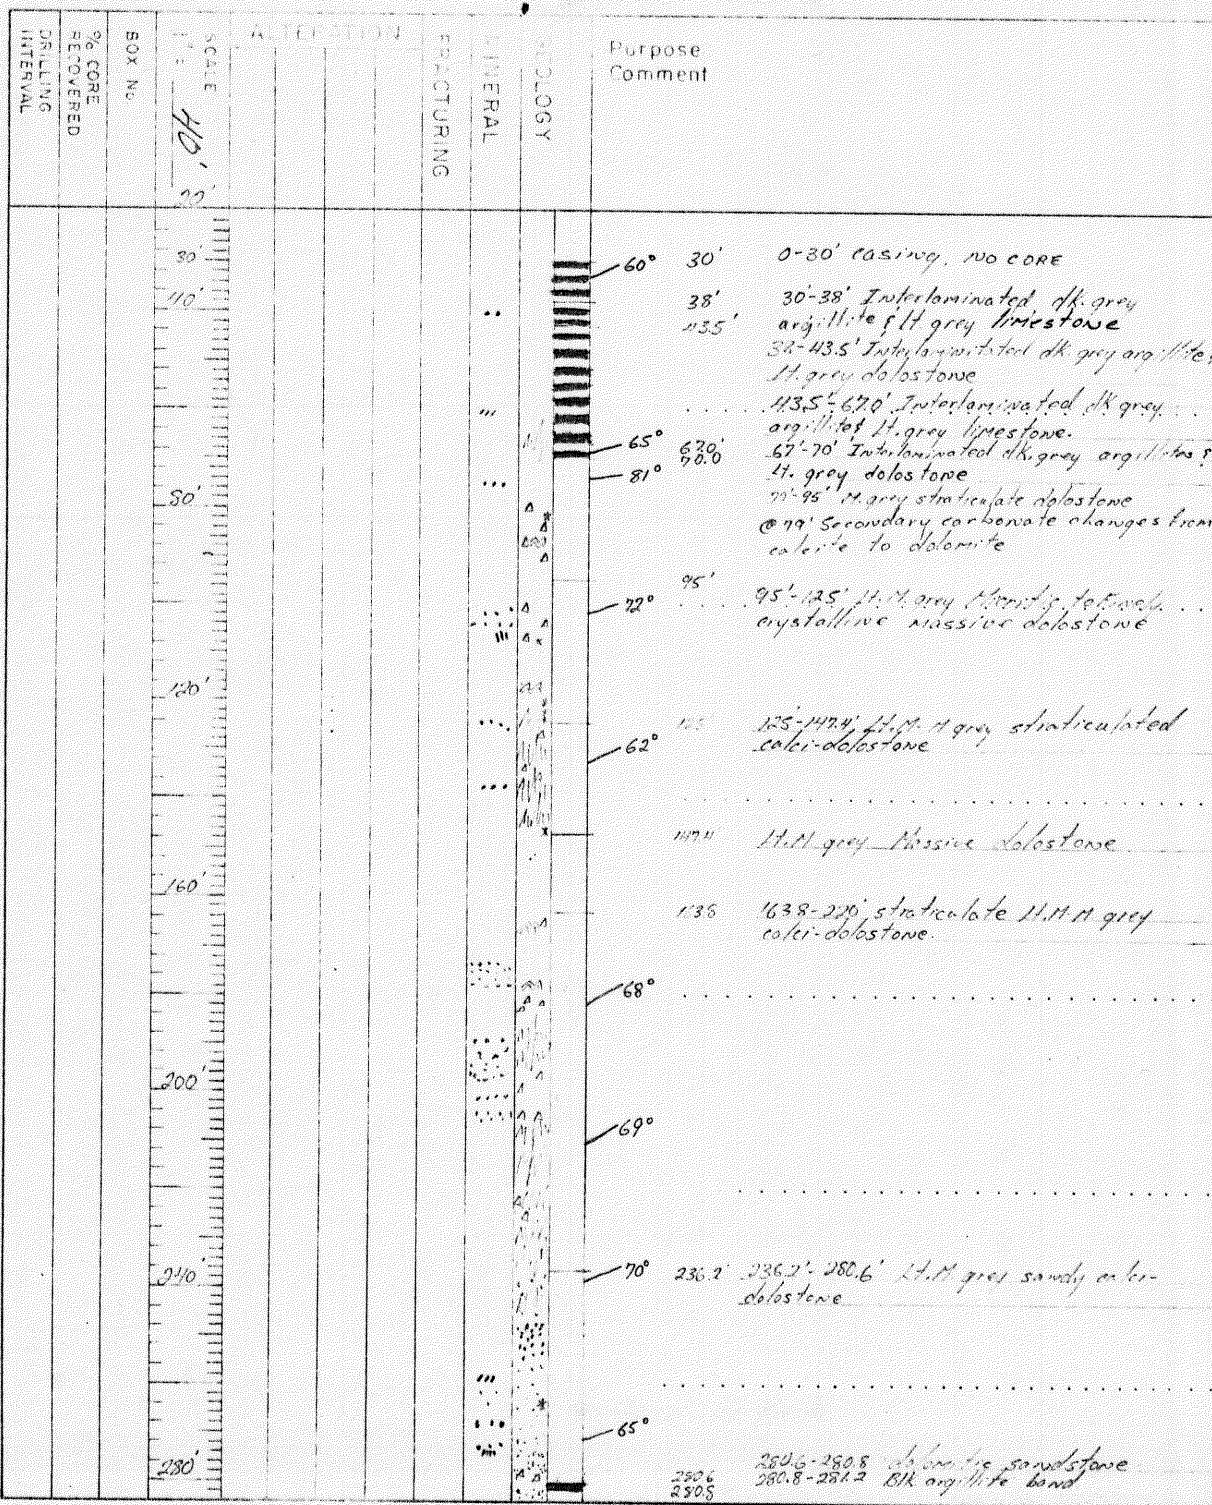 DRILLING INTERVAL
% CORE RECOVERED
BOX No.
SCALE 1" = 40'
ALTERATION
FRACTURING
MINERAL
Purpose
Comment
20'
30'
40'
80'
120'
160'
200'
240'
280'
60°
65°
81°
72°
62°
68°
69°
70°
65°
30' 0-30' casing, NO CORE
38' 30'-38' Interlaminated dk. grey
43.5' argillite & lt grey limestone
38-43.5' Interlamintated dk grey argillite &
lt. grey dolostone
43.5'-67.0' Interlaminated dk grey
argillite & Lt. grey limestone.
67.0' 67'-70' Interlaminated dk. grey argillites &
70.0 Lt. grey dolostone
70'-95' M. grey straticulate dolostone
@ 79' Secondary carbonate changes from
calcite to dolomite
95' 95'-125' Lt. M. grey
crystalline massive dolostone
125 125-147.4' Lt. M. M grey straticulated
calci-dolostone
147.4 Lt. M grey Massive dolostone
163.8 163.8-220' straticulate Lt. M. M grey
calci-dolostone.
236.2' 236.2'-280.6' Lt. M grey sandy calci-
dolostone
280.6-280.8 dolomitic sandstone
280.6 280.8-281.2 Blk argillite band
280.8